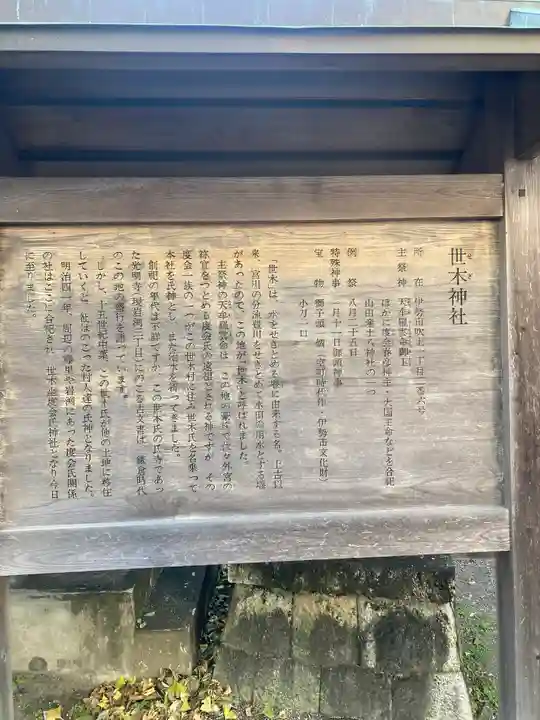 せぎ
世木神社
所在 伊勢市吹上一丁目一番六号
主祭神 天牟羅雲命
ほかに度会春彦神主・大国主命などを合祀
山田産土八神社の一つ
例祭 八月二十五日
特殊神事 二月十一日御頭神事
宝物 獅子頭一頭(室町時代作・伊勢市文化財)
小刀一口
「世木」は、水をせきとめる堰に由来する名。上古以
来、宮川の分流豊川をせきとめて水田の用水とする堰
があったので、この地が「世木」と呼ばれました。
主祭神の天牟羅雲命は、この地の豪族で代々外宮の
祢宜をつとめる度会氏の遠祖とされる神ですが、その
度会一族の一つがこの世木村に住み世木氏を名乗って
本社を氏神とし、また治水を祷ってきました。
創祀の年代は不詳ですが、この世木氏の氏寺であっ
た光明寺(現岩渕三丁目)にのこる古文書は、鎌倉時代
のこの地の盛行を語っています。
しかし、十五世紀中葉、この世木氏が他の土地に移住
していくと、社はのこった村人達の氏神となりました。
明治四一年、周辺の
にあった度会氏関係
の社はここに合祀され、世木
度会氏神社となり今日
に至りました。